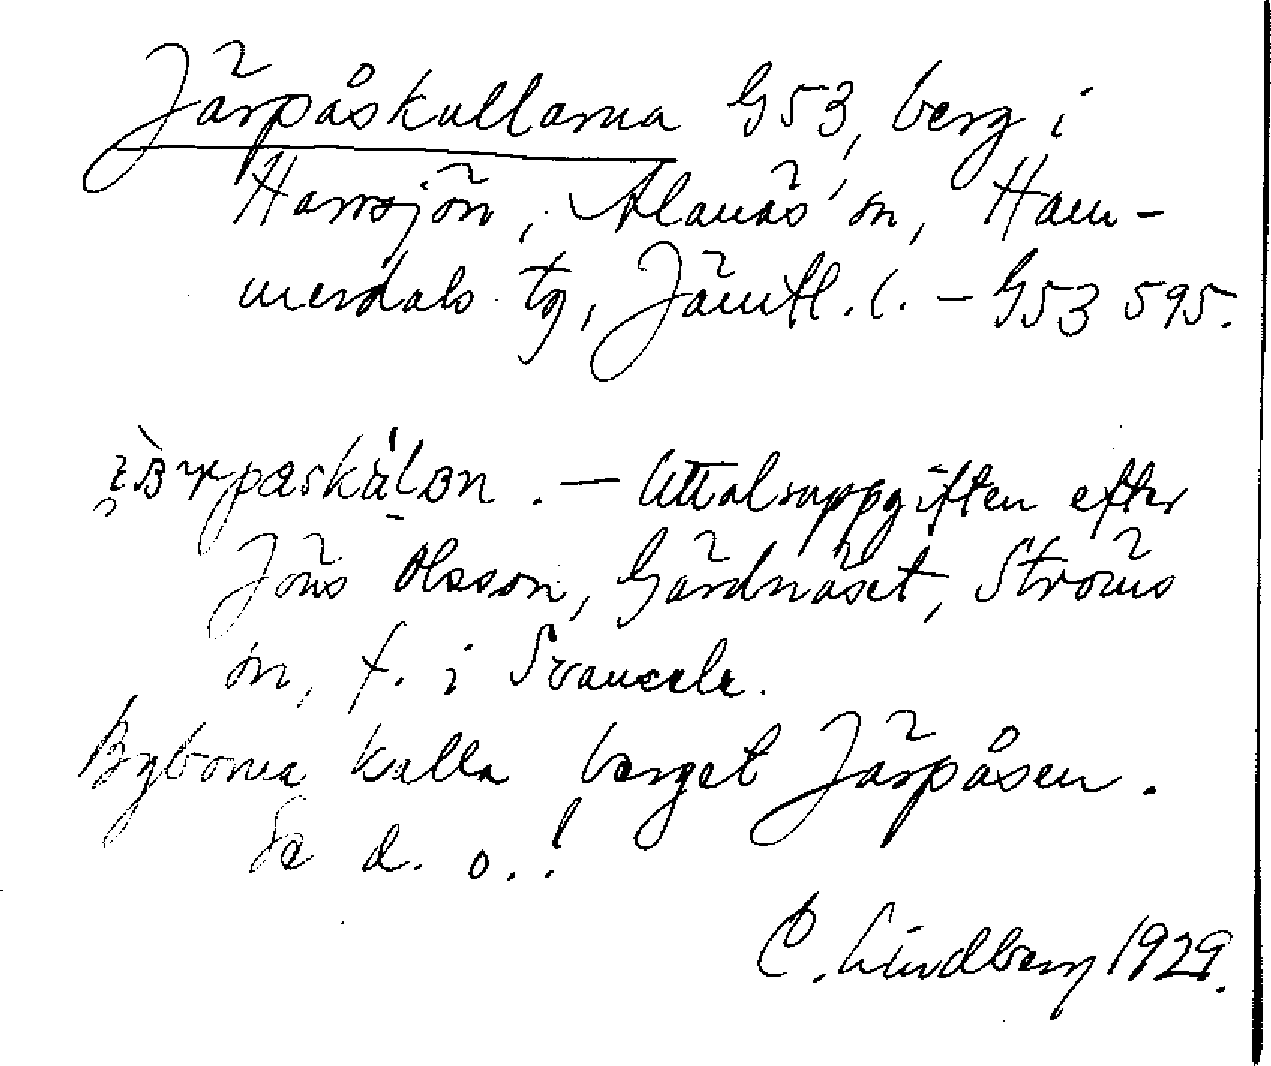 Järpåskullarna G53, berg i
Harrsjön, Alanäs sn, Ham-
merdals tg, Jämtl. l. – G53 595.
– Uttalsuppgiften efter
Jöns Olsson, Gärdnäset, Ströms
sn, f. i Svaningen.
Byborna kalla berget Järpåsen.
Se d. o.!
C. Lindberg 1929.